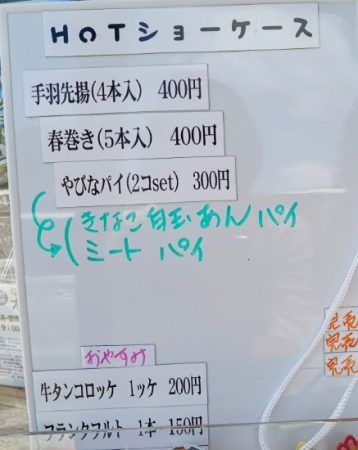 HOTショーケース
手羽先揚(4本入) 400円
春巻き(5本入) 400円
やびなパイ(2コset) 300円
きなこ白玉あんパイ
ミートパイ
おやすみ
牛タンコロッケ 1ッケ 200円
フランクフルト 1本 150円
完売
完売
完売